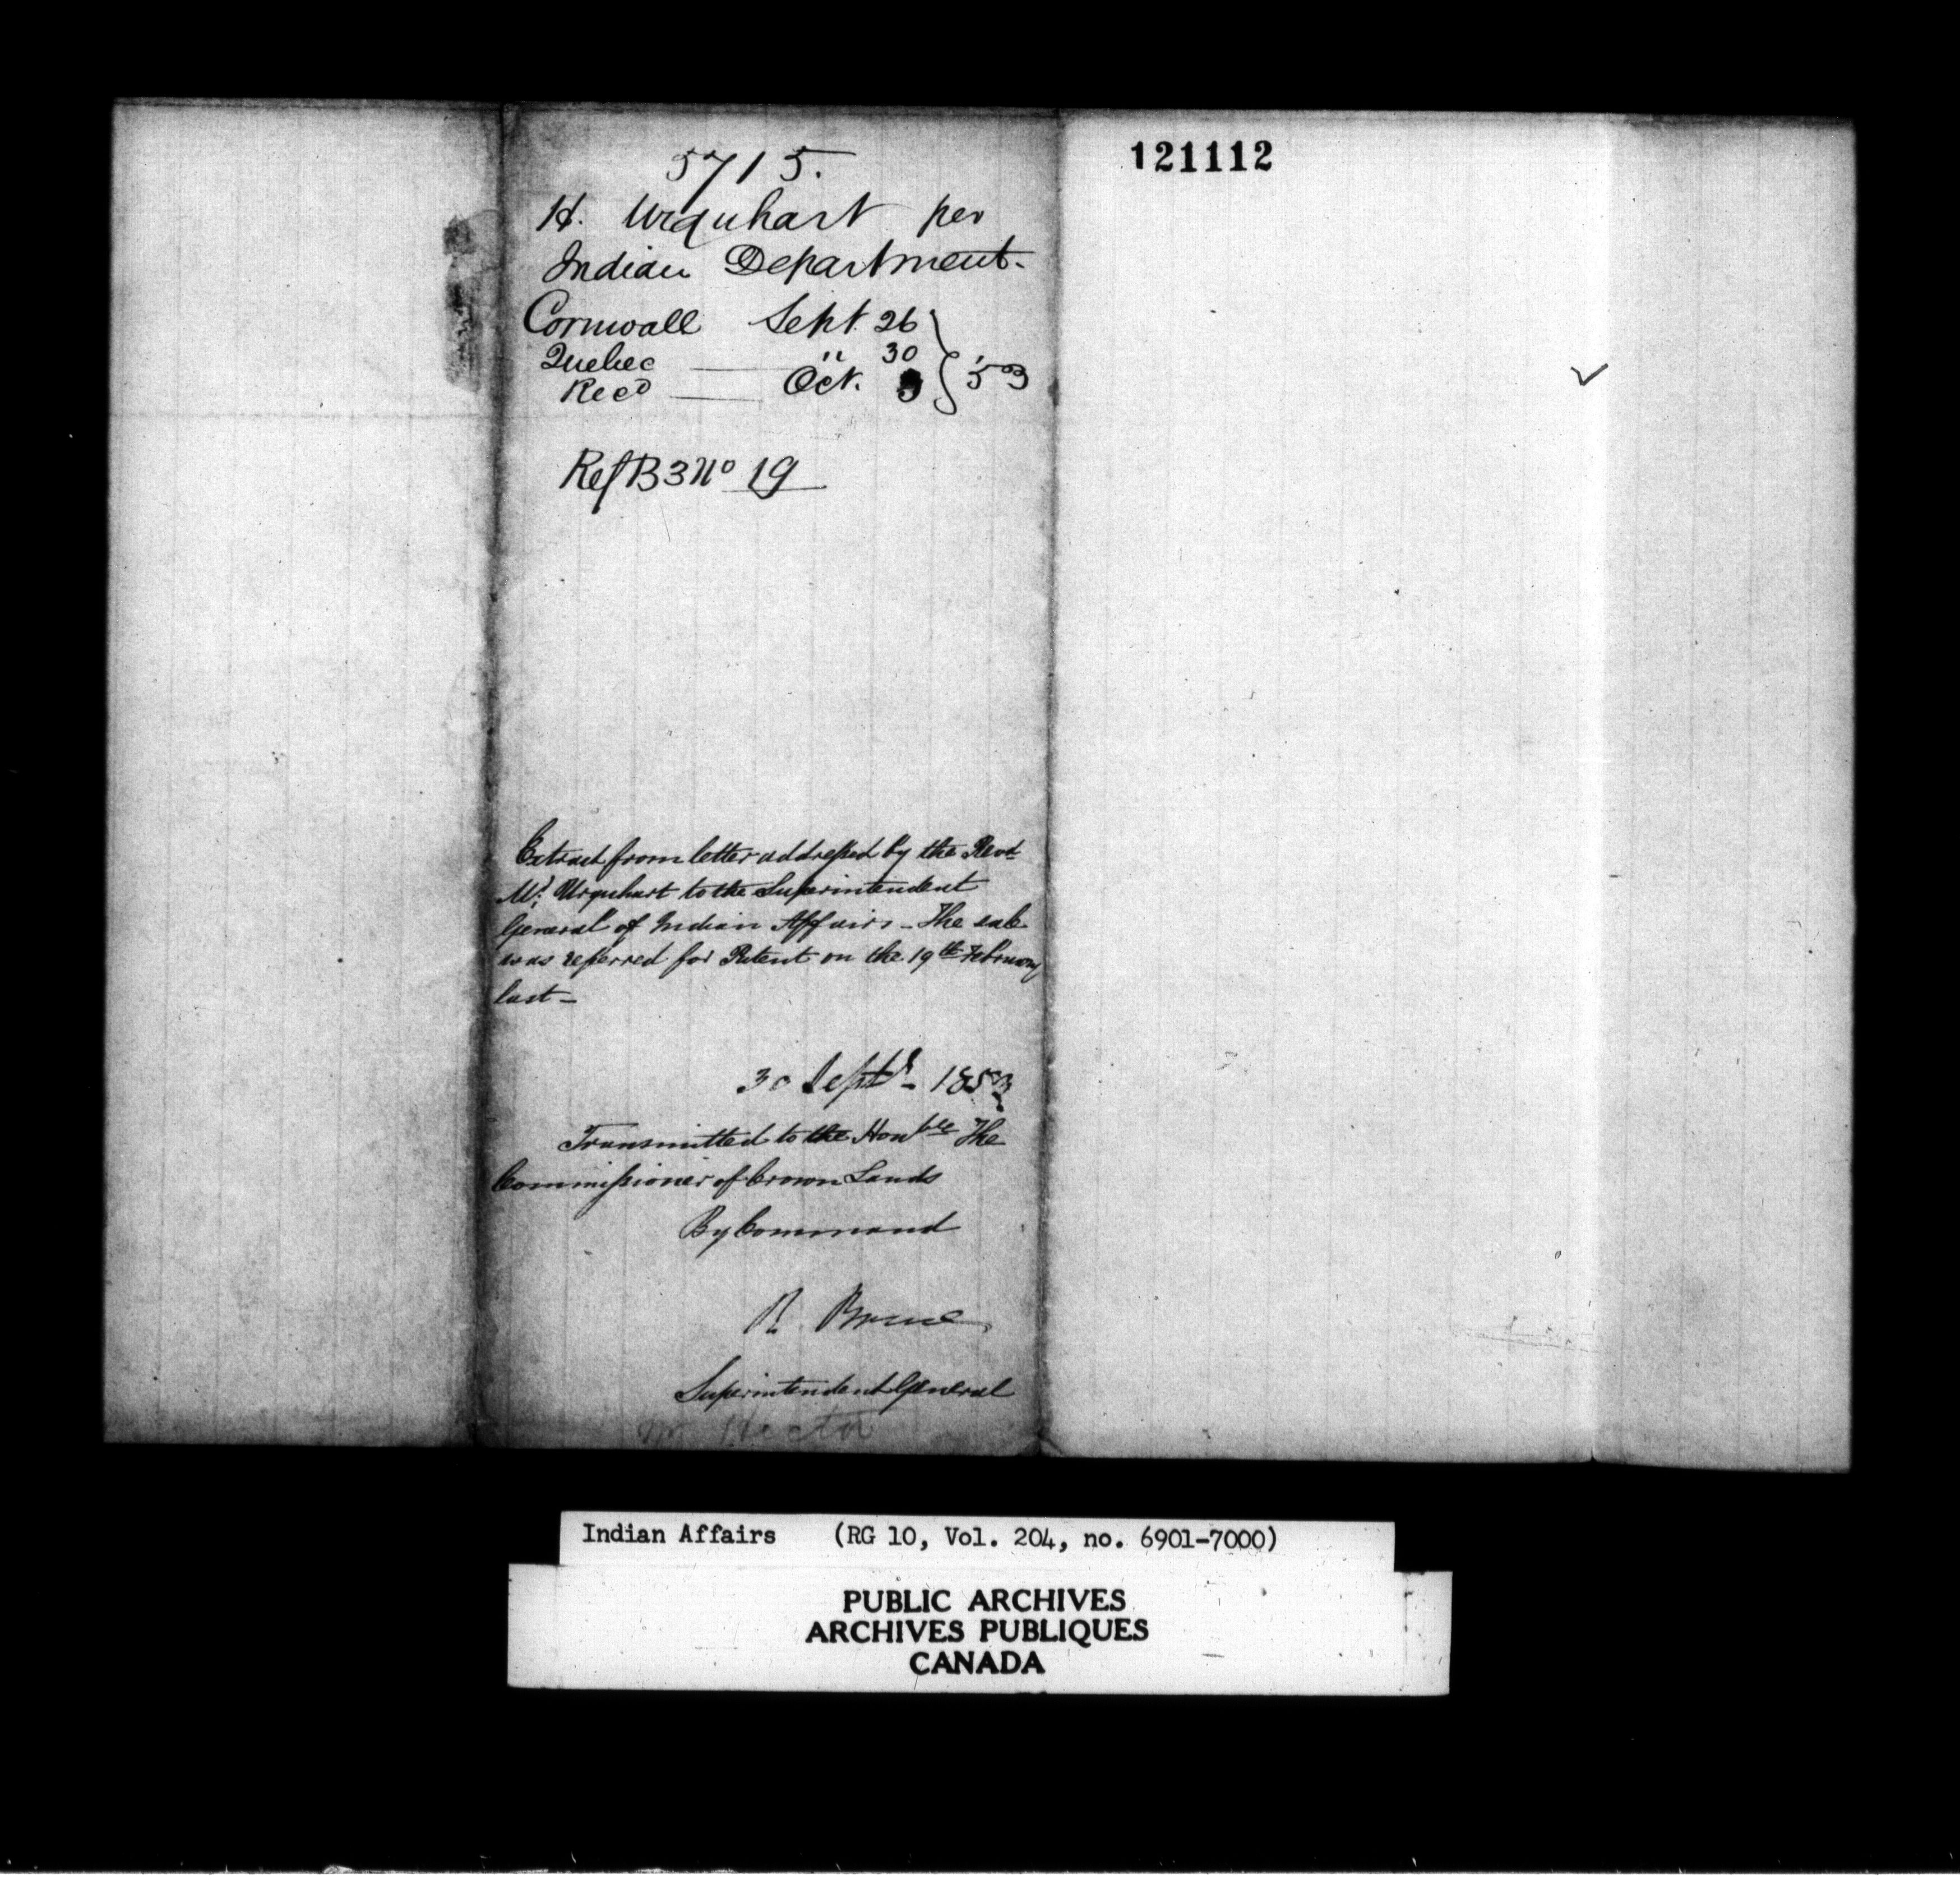 5715.
H. Urquhart per
Indian Department.
Cornwall Sept. 26
Quebec " 30
Recd Oct. 3 } '53
Ref B 3 No 19
Extract from letter addressed by the Revd
Mr. Urquhart to the Superintendent
General of Indian Affairs - The sale
was referred for Patent on the 19th February
last -
30 Septr - 1853
Transmitted to the Honble The
Commissioner of Crown Lands
By Command
R. Bruce
Superintendent General
Mr Hector
121112
Indian Affairs (RG 10, Vol. 204, no. 6901-7000)
PUBLIC ARCHIVES
ARCHIVES PUBLIQUES
CANADA